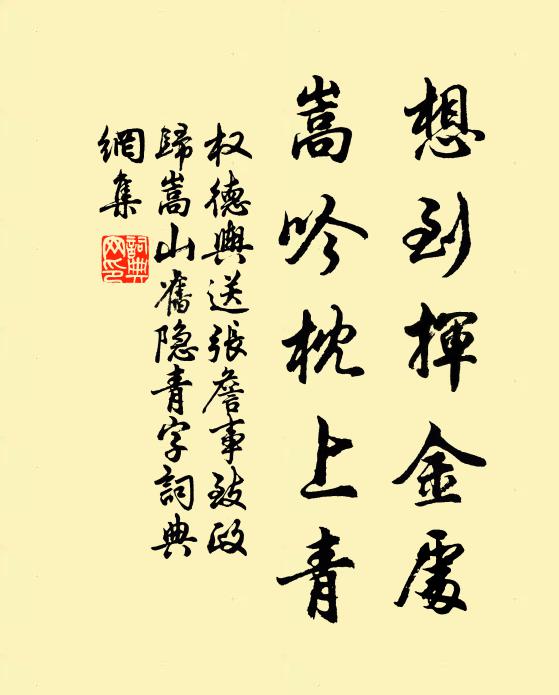 想到揮金處
嵩吟枕上青
权德輿送張詹事致政
歸嵩山舊隐青字詞典
網集
詞典網印